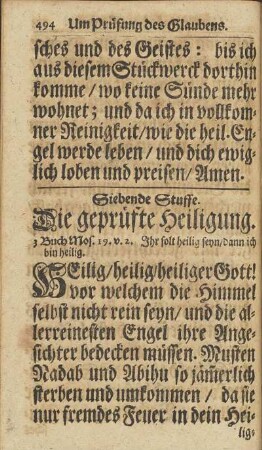 494 Um Prüfung des Glaubens.
sches und des Geistes: bis ich
aus diesem Stückwerck dorthin
komme / wo keine Sünde mehr
wohnet; und da ich in vollkom-
ner Reinigkeit / wie die heil. En-
gel werde leben / und dich ewig-
lich loben und preisen / Amen.
Siebende Stuffe.
Die geprüfte Heiligung.
3 Buch Mos. 19. v. 2. Ihr solt heilig seyn / dann ich
bin heilig.
HEilig / heilig / heiliger Gott!
vor welchem die Himmel
selbst nicht rein seyn / und die al-
lerreinesten Engel ihre Ange-
sichter bedecken müssen. Musten
Nadab und Abihu so jäm̃erlich
sterben und umkommen / da sie
nur fremdes Feuer in dein Hei-
lig-